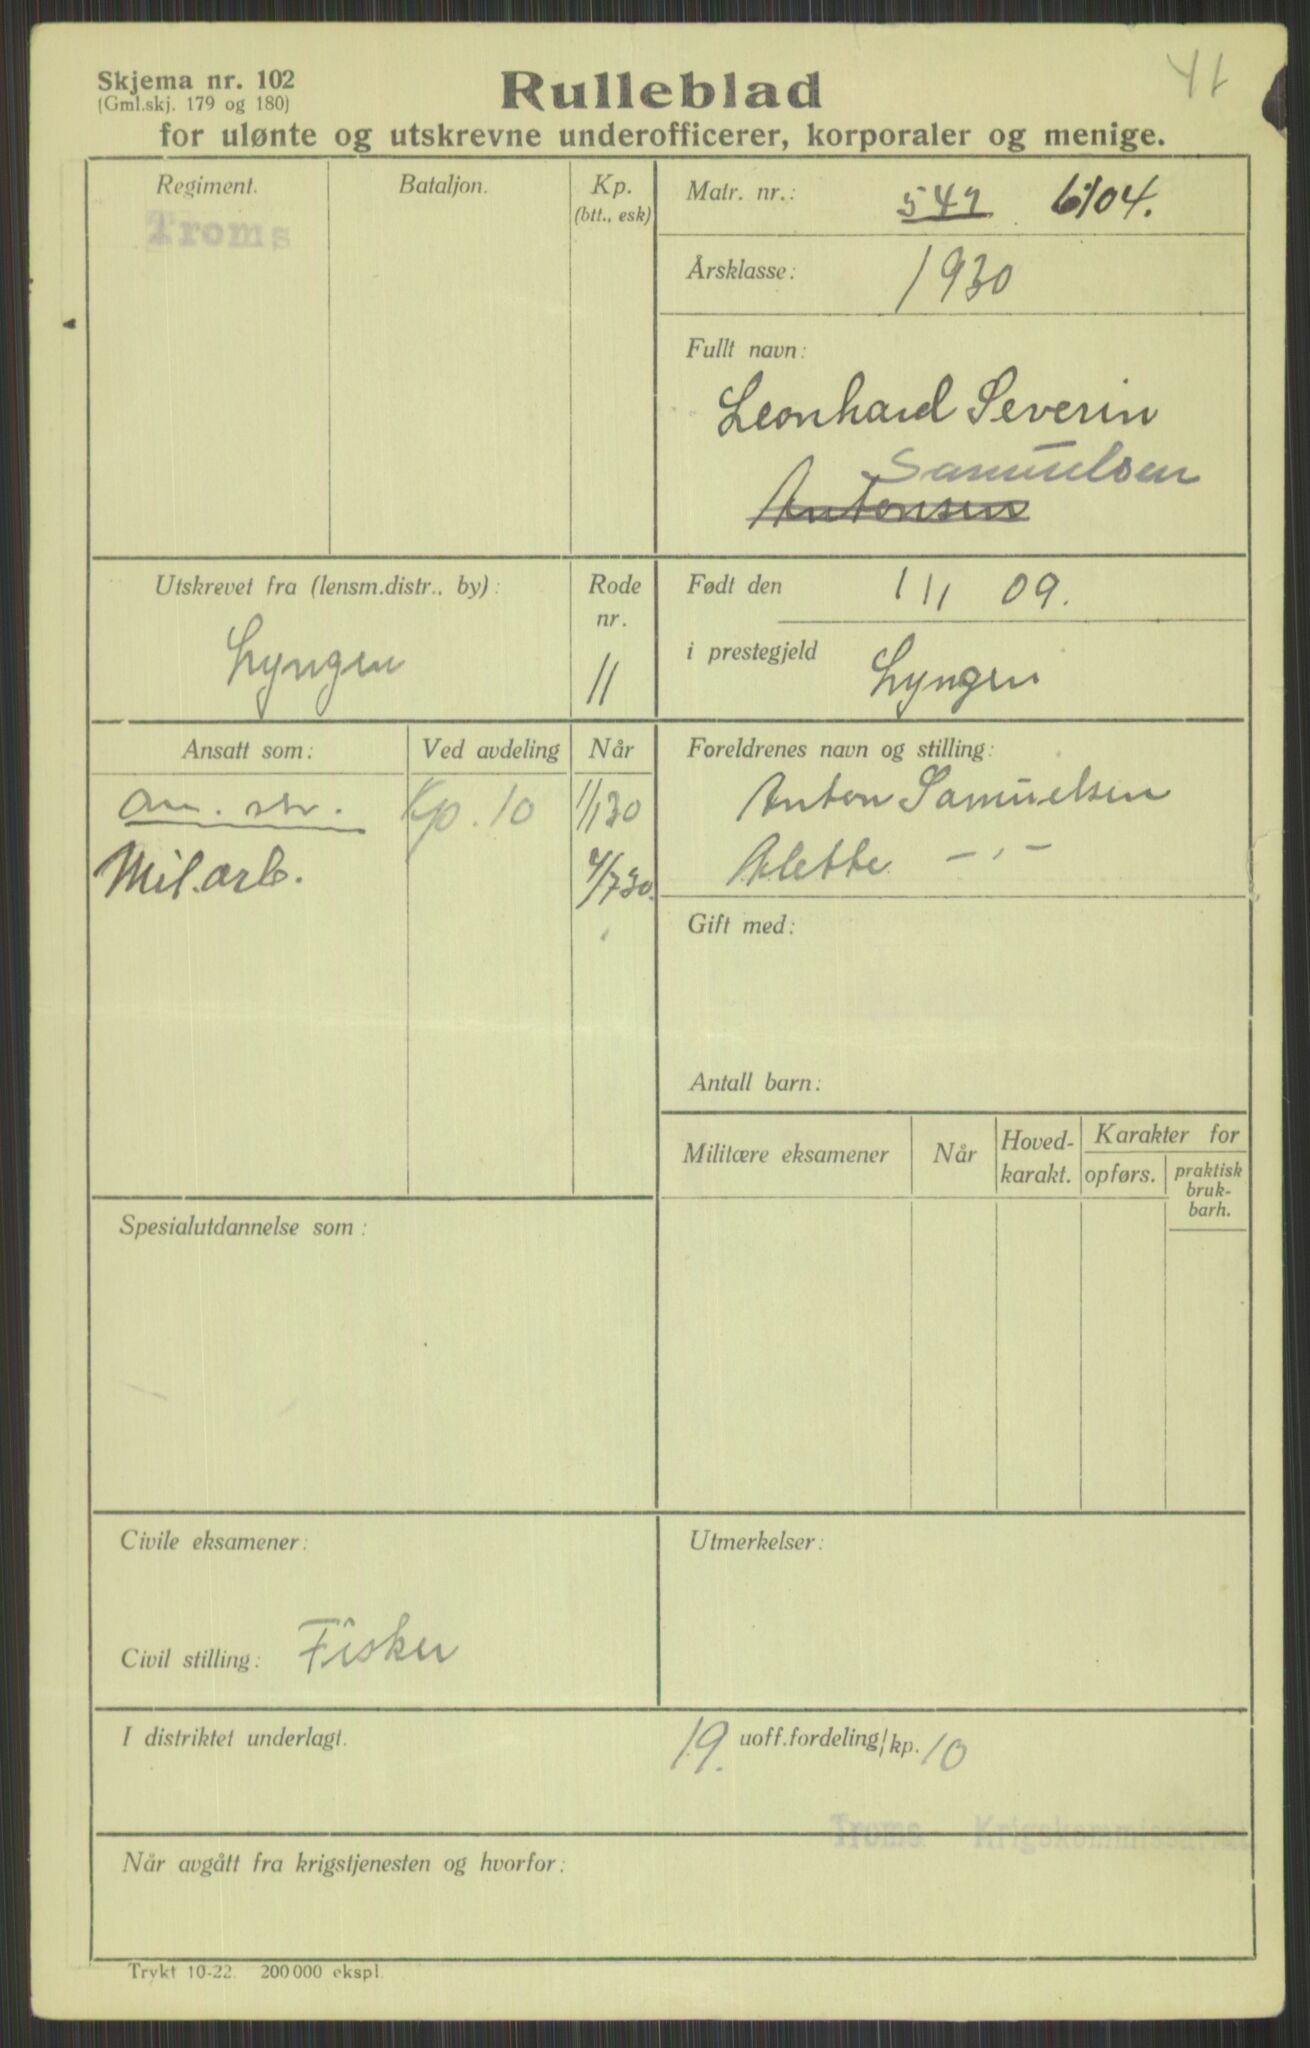 41
Skjema nr. 102
(Gml.skj. 179 og 180)
Rulleblad
for ulønte og utskrevne underofficerer, korporaler og menige.
Regiment.
Bataljon.
Kp.
(btt., esk)
Troms
Matr. nr.:
547 6104.
Årsklasse:
1930
Fullt navn:
Leonhard Severin
Samuelsen
Antonsen
Utskrevet fra (lensm.distr., by):
Lyngen
Rode
nr.
11
Født den
1/11 09.
i prestegjeld
Lyngen
Ansatt som:
Ved avdeling
Når
Kp. 10
1/1 30
Mil.arb.
4/7 30.
Foreldrenes navn og stilling:
Anton Samuelsen
Alette — " —
Gift med:
Antall barn:
Militære eksamener
Når
Hoved-
karakt.
Karakter for
opførs.
praktisk
bruk-
barh.
Spesialutdannelse som:
Civile eksamener:
Civil stilling: Fisker
Utmerkelser:
I distriktet underlagt.
19. uoff.fordeling/kp. 10
Troms Krigskommissariat
Når avgått fra krigstjenesten og hvorfor:
Trykt 10-22. 200 000 ekspl.